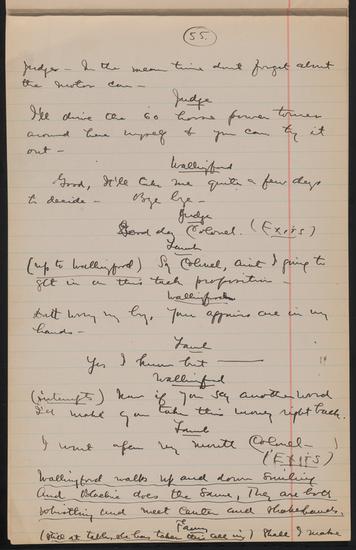 55.
Judge - In the mean time dont forget about
the motor car -
Judge
I'll drive the 60 horse power tourer
around here myself & you can try it
out -
Wallingford
Good, It'll take me quite a few days
to decide - Bye bye -
Judge
Good day Colonel. (Exits)
Lamb
(up to Wallingford) Say Colonel, aint I going to
get in on this tack proposition -
Wallingford
Dont worry my boy, your affairs are in my
hands -
Lamb
Yes I know but ———
Wallingford
(interrupts) Now if you say another word
I'll make you take this money right back.
Lamb
I wont open my mouth Colonel -
(Exits)
Wallingford walks up and down smiling
and Blackie does the same, They are both
whistling and meet center and shakehands.
Fanny
(Still at table, she has taken this all in) Shall I make